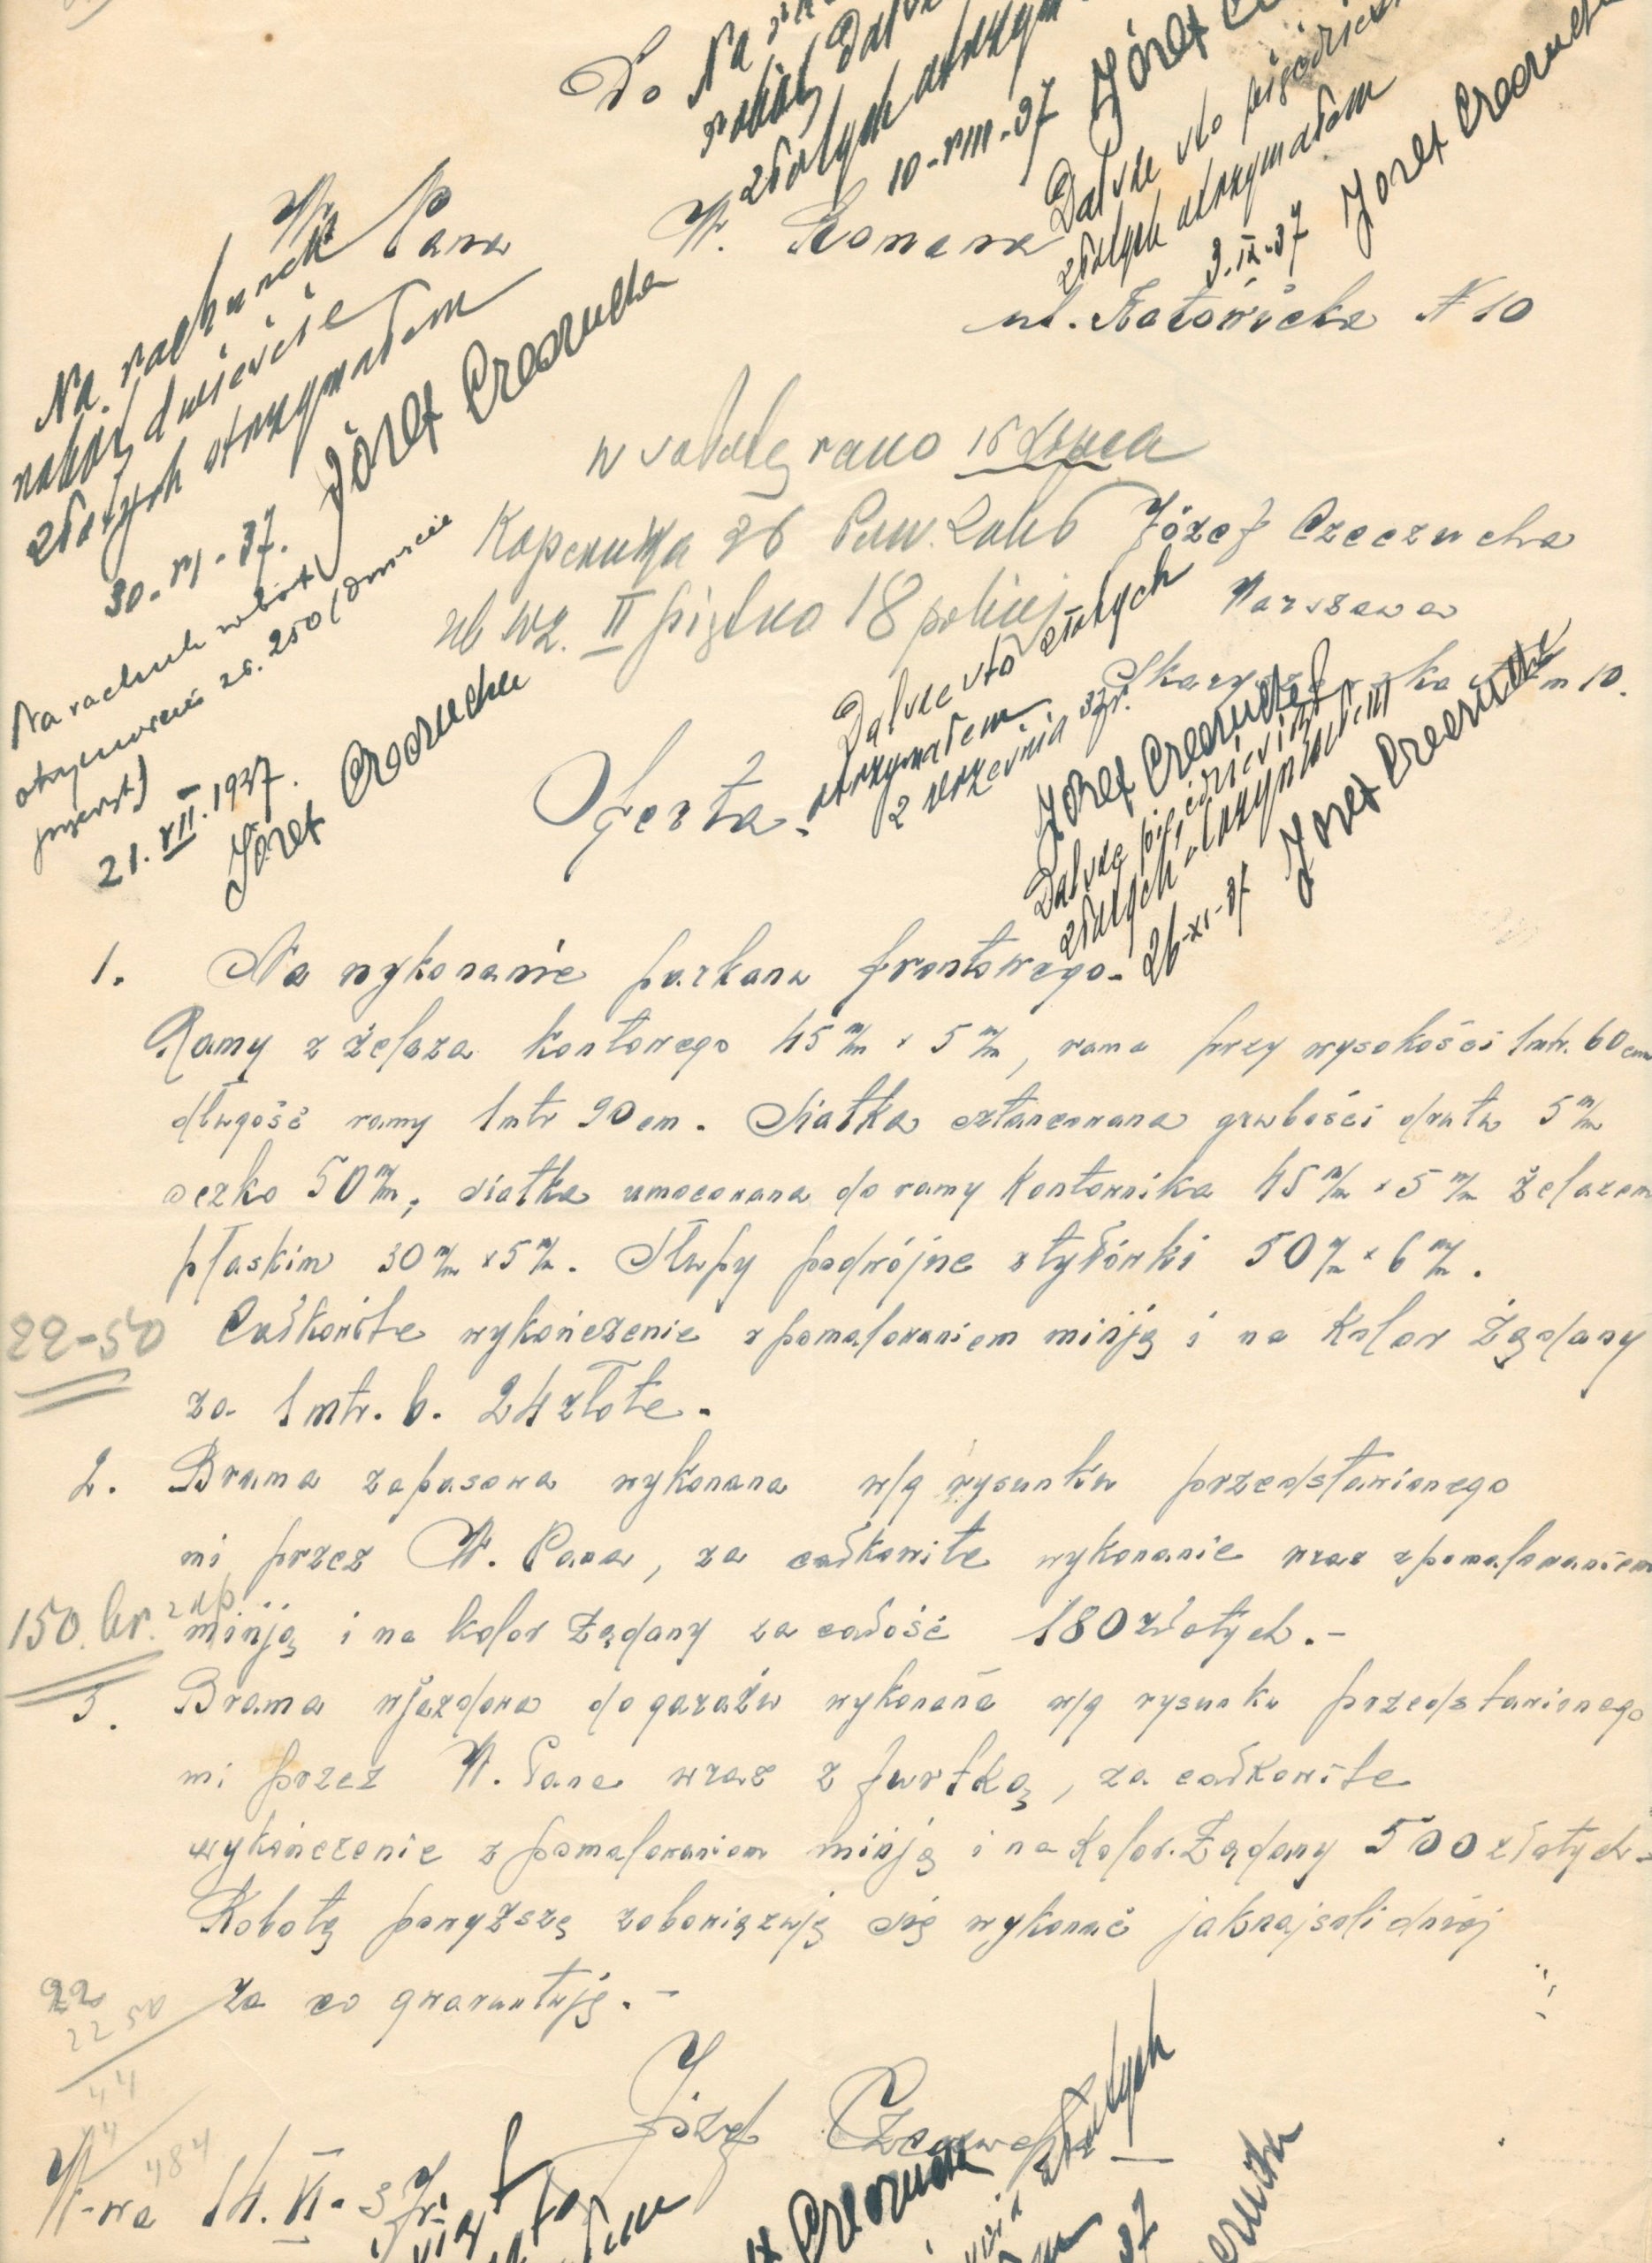 Do
W. Pana W. Romana
ul. Katowicka N 10
Na
robót
złotych otrzymałem
10-VIII-37 Józef
Dalsze sto pięćdziesiąt
złotych otrzymałem
3.IX-37 Józef Czeczucha
Na rachunek
robót dwieście
złotych otrzymałem
30-VI-37. Józef Czeczucha
Na rachunek robót
otrzymałem zł. 250 (dwieście
21.VII.1937.
Józef Czeczucha
w sobotę rano
Kopernika 36
II piętro 18 pokój
Józef Czeczucha
Warszawa
m 10.
Dalsze sto złotych
otrzymałem
2 września 37r.
Józef Czeczucha
Dalsze pięćdziesiąt
złotych otrzymałem
26-XI-37 Józef Czeczucha
Oferta.
1. Na wykonanie parkanu frontowego.
Ramy z żelaza kontowego 45 m/m x 5 m/m, rama przy wysokości 1mtr. 60 cm
długość ramy 1mtr 90 cm. Siatka sztancowana grubości drutu 5 m/m
oczko 50 m/m, siatka umocowana do ramy kontownika 45 m/m x 5 m/m żelazem
płaskim 30 m/m x 5 m/m. Słupy podwójne z tyłówki 50 m/m x 6 m/m.
22-50 Całkowite wykończenie z pomalowaniem minją i na kolor żądany
za 1 mtr. b. 24 złote.
2. Brama zapasowa wykonana w/g rysunku przedstawionego
mi przez W. Pana, za całkowite wykonanie wraz z pomalowaniem
150. minją i na kolor żądany za całość 180 złotych.-
3. Brama wjazdowa do garażu wykonana w/g rysunku przedstawionego
mi przez W. Pana wraz z furtką, za całkowite
wykończenie z pomalowaniem minją i na kolor. żądany 500 złotych-
Robotę powyższą zobowiązuję się wykonać jaknajsolidniej
za co gwarantuję.-
22
22 50
44
44
484
Józef Czeczucha
W-wa 14.VI-37r.
Czeczucha
złotych
37